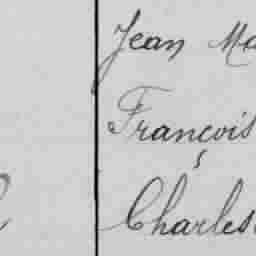 Jean Ma
François
Charles